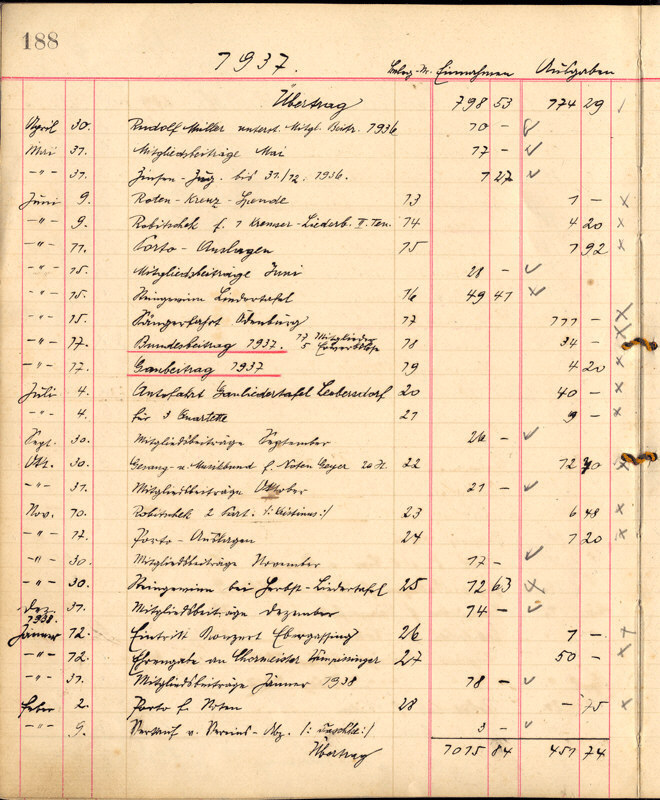 188
1937. Beleg-Nr. Einnahmen Ausgaben
Übertrag 798 53 174 29
April 30. Rudolf Müller unterst. Mitgl. Beitr. 1936 10 –
Mai 31. Mitgliedsbeiträge Mai 17 –
–"– 31. Zinsen- bis 31./12. 1936. 1 27
Juni 9. Roten-Kreuz-Spende 13 1 –
–"– 9. Robitschek f. 1 Kremser-Liederb. II. Ten. 14 4 20
–"– 11. Porto-Auslagen 15 1 92
–"– 15. Mitgliedsbeiträge Juni 21 –
–"– 15. Reingewinn Liedertafel 16 49 41
–"– 15. Sängerfahrt Ödenburg 17 111 –
–"– 17. Bundesbeitrag 1937. 17 Mitglieder 5 18 34 –
–"– 17. Gaubeitrag 1937 19 4 20
Juli 4. Autofahrt Gauliedertafel Leobersdorf 20 40 –
–"– 4. für 3 Quartette 21 9 –
Sept. 30. Mitgliedsbeiträge September 26 –
Okt. 30. Gesang- u. Musikbund f. Noten Geyer 20 St. 22 12
–"– 31. Mitgliedsbeiträge Oktober 21 –
Nov. 10. Robitschek 2 Part. 23 6 48
–"– 17. Porto-Auslagen 24 1 20
–"– 30. Mitgliedsbeiträge November 17 –
–"– 30. Reingewinn bei Herbst-Liedertafel 25 12 63
Dez. 31. Mitgliedsbeiträge Dezember 14 –
1938.
Jänner 12. Eintritt Konzert Ebergassing 26 1 –
–"– 12. Ehrengabe an Chormeister 27 50 –
–"– 31. Mitgliedsbeiträge Jänner 1938 18 –
Feber 2. Porto f. Noten 28 – 75
–"– 9. Verkauf v. Vereins-Abz. 3 –
Übertrag 1015 84 451 74